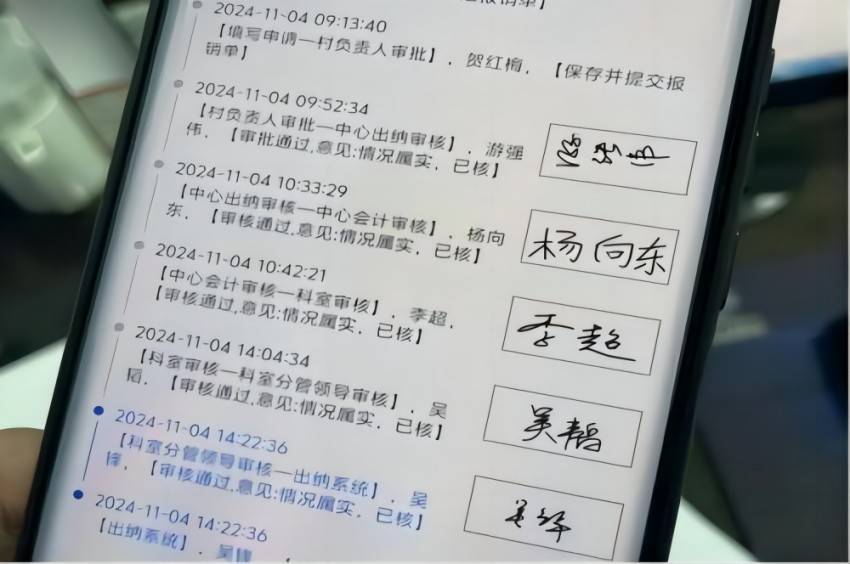 2024-11-04 09:13:40
【填写申请—村负责人审批】，贺红梅，【保存并提交报
销单】
2024-11-04 09:52:34
【村负责人审批—中心出纳审核】，游强
伟，【审批通过,意见:情况属实，已核】
2024-11-04 10:33:29
【中心出纳审核—中心会计审核】，杨向
东，【审核通过,意见:情况属实，已核】
杨向东
2024-11-04 10:42:21
【中心会计审核—科室审核】，李超，
【审核通过,意见:情况属实，已核】
李超
2024-11-04 14:04:34
【科室审核—科室分管领导审核】，吴
韬，【审核通过,意见:情况属实，已核】
吴韬
2024-11-04 14:22:36
【科室分管领导审核—出纳系统】，吴
锋，【审核通过,意见:情况属实，已核】
2024-11-04 14:22:36
【出纳系统】，吴锋，